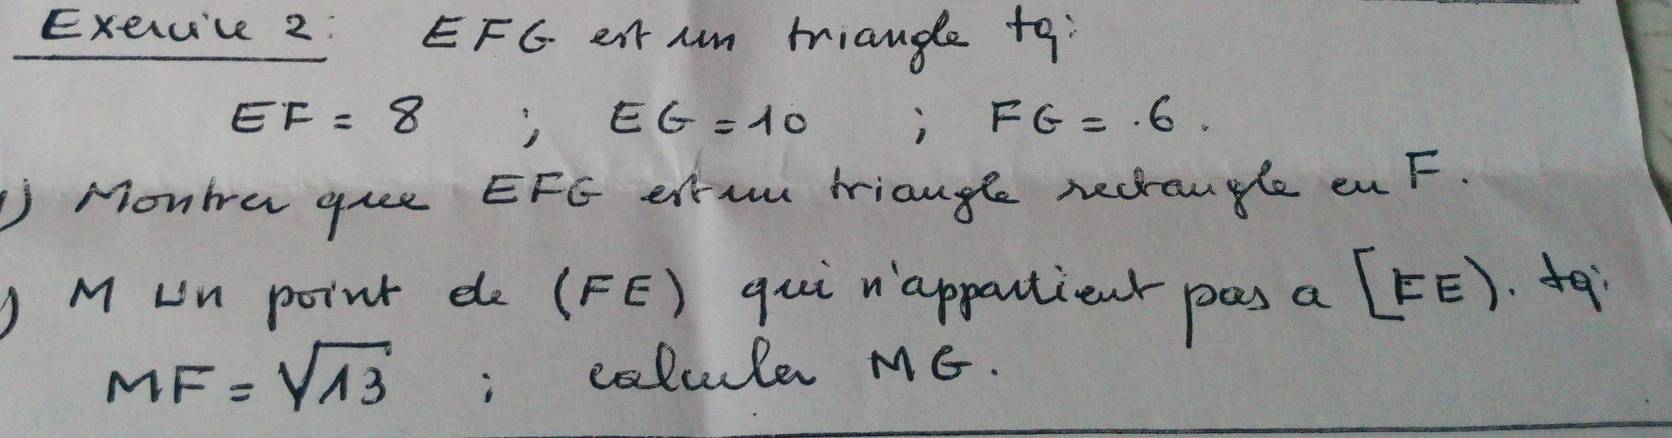 Exercice 2: EFG est un triangle tq:
EF = 8 ; EG = 10 ; FG = .6.
1) Montrer que EFG est un triangle rectangle en F.
) M un point de (FE) qui n'appartient pas a [FE). tq:
MF = √13 ; calculer MG.